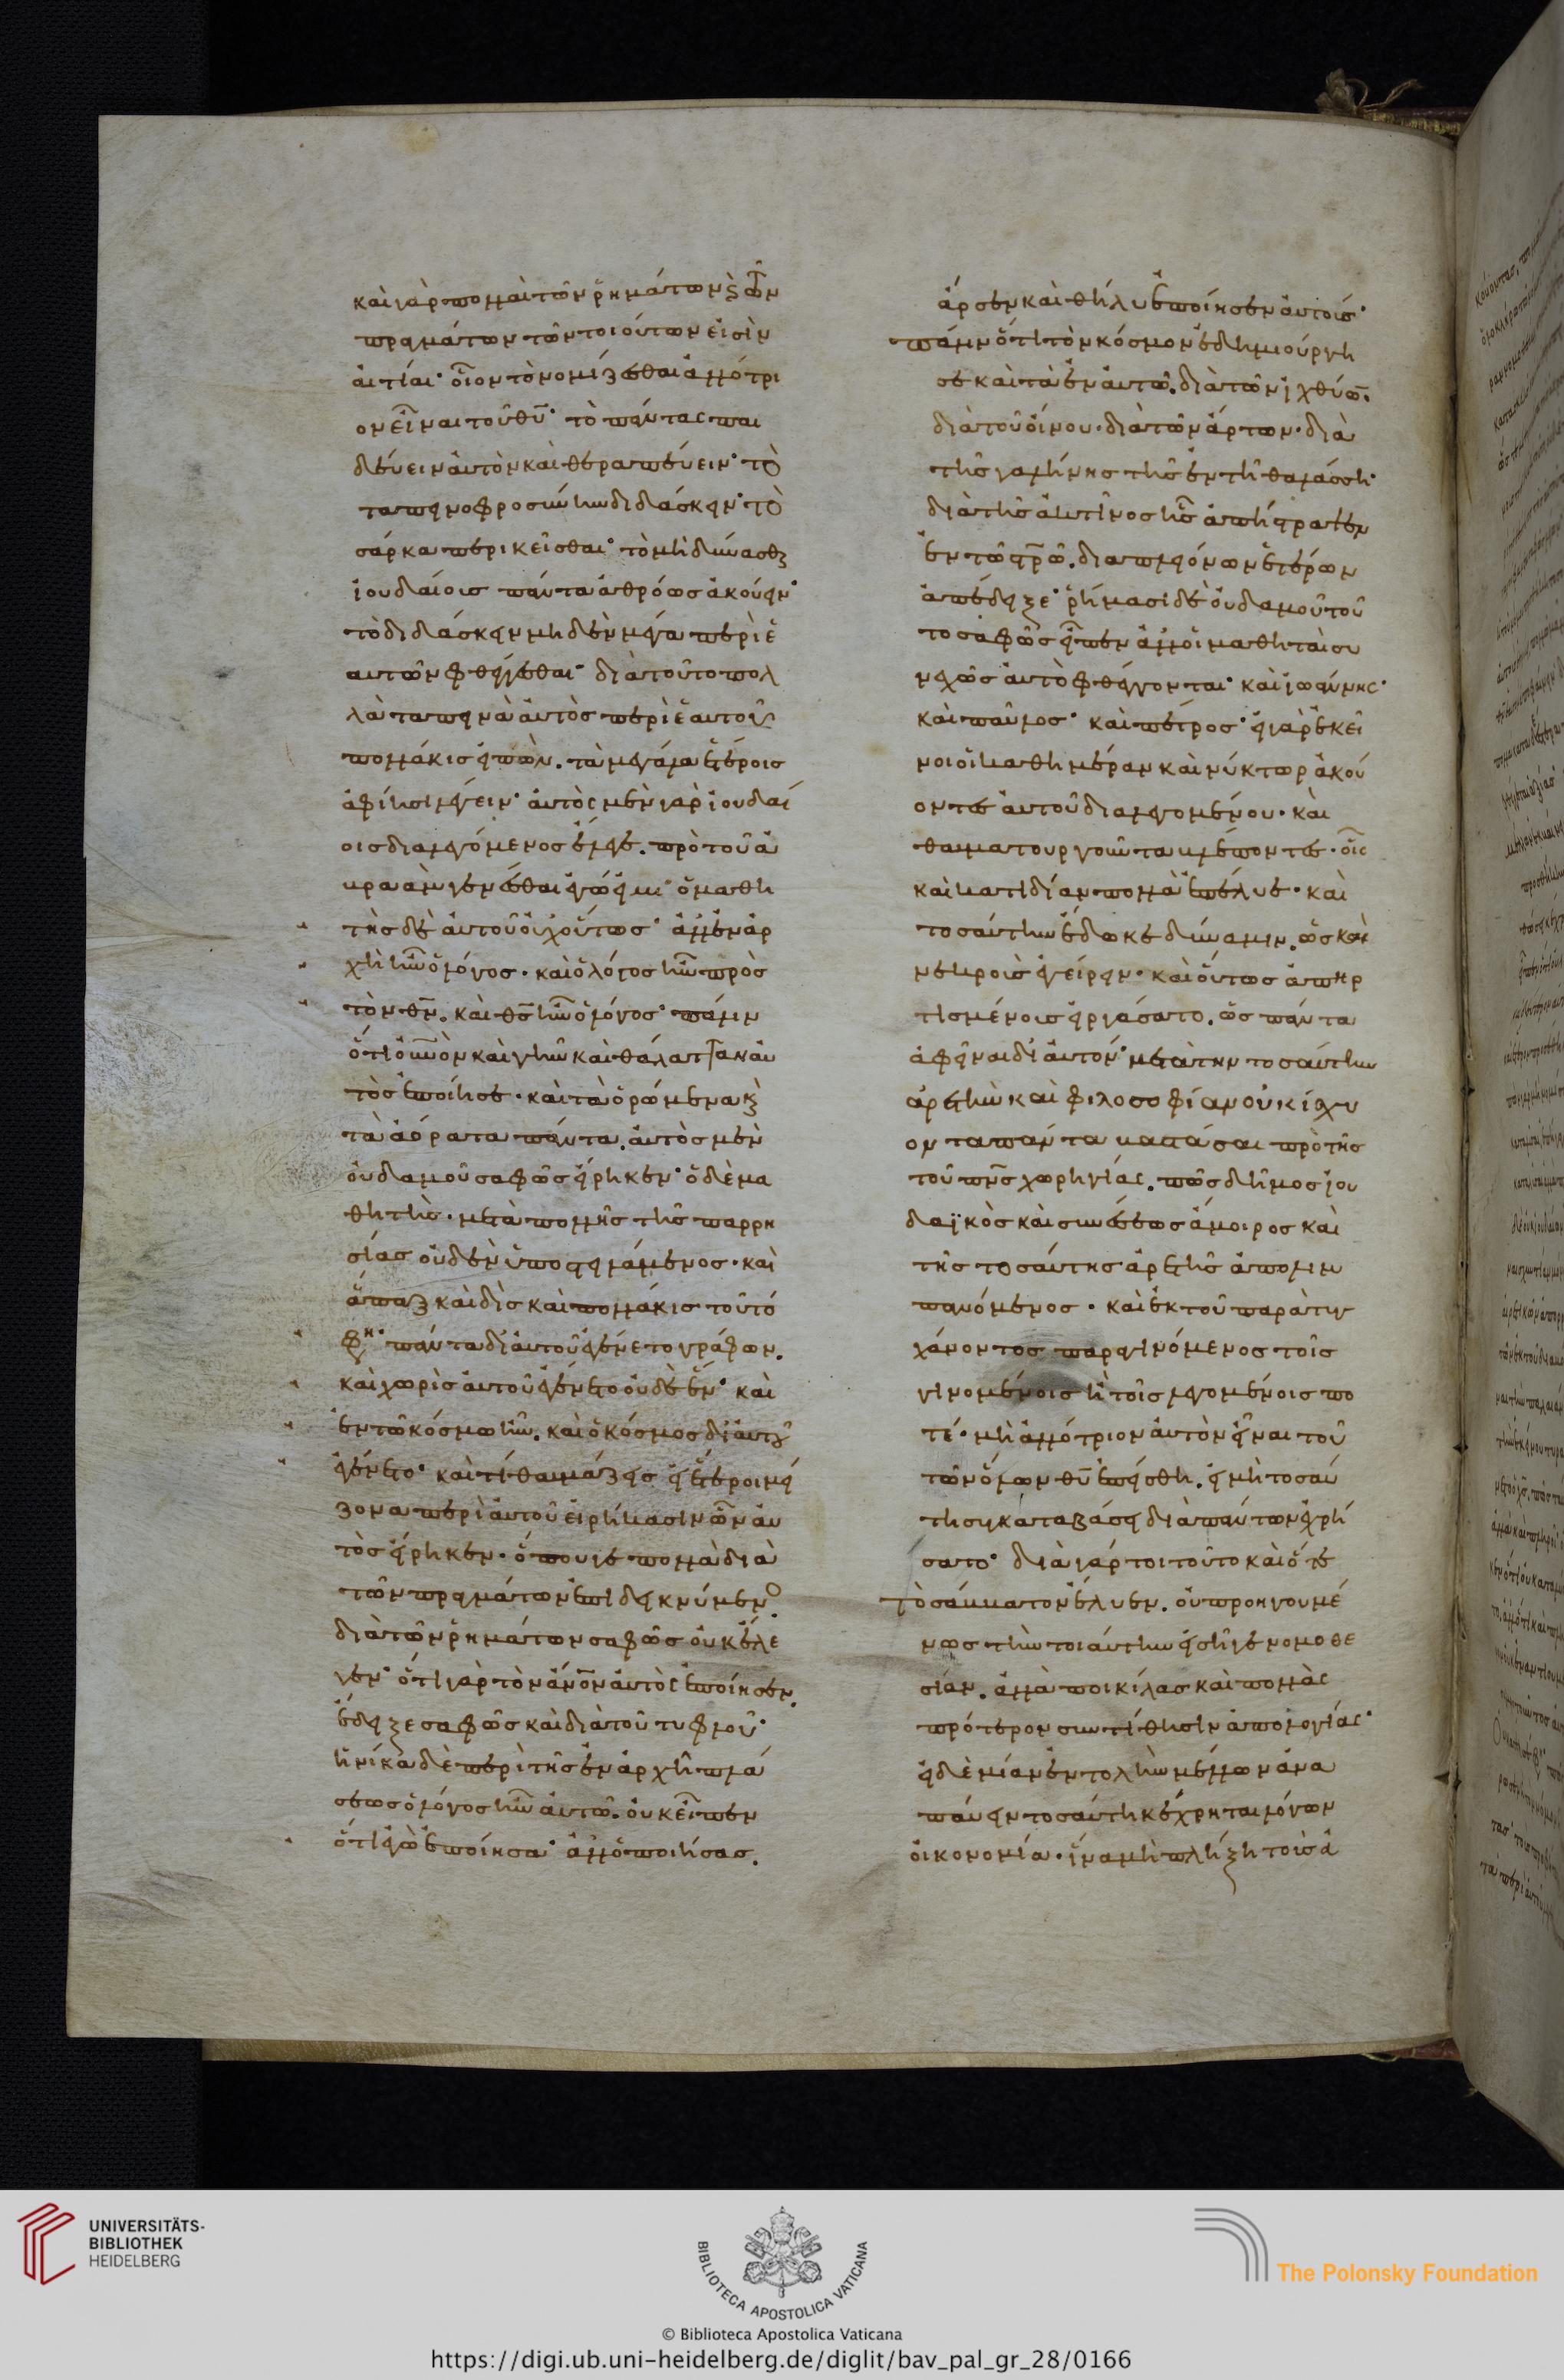 καὶ γὰρ πολλαὶ τῶν ῥημάτων ϗ τῶν
πραγμάτων τῶν τοιούτων εἰσὶν
αἰτίαι· οἷον τὸ νομίζεσθαι ἀλλότρι
ον εἶναι τοῦ θυ· τὸ πάντας παι
δεύειν αὐτὸν καὶ θεραπεύειν· τὸ
ταπεινοφροσύνην διδάσκειν· τὸ
σάρκα περικεῖσθαι· τὸ μὴ δύνασθαι
ἰουδαίοις πάντα ἀθρόως ἀκούειν·
τὸ διδάσκειν μηδὲν μέγα περὶ ἑ
αυτῶν φθέγγεσθαι· διὰ τοῦτο πολ
λὰ ταπεινὰ αὐτὸς περὶ ἑαυτοῦ
πολλάκις εἰπὼν. τὰ μεγάλα ἑτέροις
ἀφίησι λέγειν· αὐτὸς μὲν γὰρ ἰουδαί
οις διαλεγόμενος ἔλεγε. πρὸ τοῦ ἀ
βραὰμ γενέσθαι ἐγώ εἰμι· ὁ μαθη
τὴς δὲ αὐτοῦ οὐχ οὕτως· ἀλλ' ἐν ἀρ
χῆ ἦν ὁ λόγος. καὶ ὁ λόγος ἦν πρὸς
τὸν θν. καὶ θς ἦν ὁ λόγος· πάλιν
ὅτι οὐνὸν καὶ γῆν καὶ θάλατταν αὐ
τὸς ἐποίησε. καὶ τὰ ὁρώμενα ϗ
τὰ ἀόρατα πάντα. αὐτὸς μὲν
οὐδαμοῦ σαφῶς εἴρηκεν· ὁ δὲ μα
θητὴς. μετὰ πολλῆς τῆς παρρη
σίας οὐδὲν ὑποστειλάμενος. καὶ
ἅπαξ καὶ δὶς καὶ πολλάκις τοῦτό
φη· πάντα δι' αὐτοῦ ἐγένετο γράφων.
καὶ χωρὶς αὐτοῦ ἐγένετο οὐδὲ ἕν· καὶ
ἐν τῶ κόσμω ἦν. καὶ ὁ κόσμος δι' αὐτοῦ
ἐγένετο· καὶ τί θαυμάζεις εἰ ἕτεροι μεί
ζονα περὶ αὐτοῦ εἰρήκασιν ὧν αὐ
τὸς εἴρηκεν. ὅπου γε πολλὰ διὰ
τῶν πραγμάτων ἐπιδεικνύμενος
διὰ τῶν ῥημάτων σαφῶς οὐκ ἔλε
γεν· ὅτι γὰρ τὸν ἄνον αὐτὸς ἐποίησεν.
ἔδειξε σαφῶς καὶ διὰ τοῦ τυφλοῦ·
ἡνίκα δὲ περὶ τῆς ἐν ἀρχῆ πλά
σεως ὁ λόγος ἦν αὐτῶ. οὐκ εἶπεν
ὅτι ἐγὼ ἐποίησα· ἀλλ' ὁ ποιήσας.
ἄρσεν καὶ θῆλυ ἐποίησεν αὐτοὺς·
πάλιν ὅτι τὸν κόσμον ἐδημιούργη
σε καὶ τὰ ἐν αὐτῶ. διὰ τῶν ἰχθύω.
διὰ τοῦ οἴνου. διὰ τῶν ἄρτων. διὰ
τῆς γαλήνης τῆς ἐν τῆ θαλάσση·
διὰ τῆς ἀκτῖνος ἧς
ἐν τῶ στρῶ. δια πλειόνων ἑτέρων
ἀπέδειξε· ῥήμασι δὲ οὐδαμοῦ τοῦ
το σαφῶς εἶπεν ἀλλ' οἱ μαθηταὶ συ
νεχῶς αὐτὸ φθέγγονται· καὶ ἰωάννης·
καὶ παῦλος· καὶ πέτρος· εἰ γὰρ ἐκεῖ
νοι οἱ καθ' ἡμέραν καὶ νύκτωρ ἀκού
οντες αὐτοῦ διαλεγομένου. καὶ
θαυματουργοῦντα βλέποντες. οἷς
καὶ κατ' ἰδίαν πολλὰ ἐπέλυε. καὶ
τοσαύτην ἔδωκε δύναμιν. ὡς καὶ
νεκροὺς ἐγείρειν. καὶ οὕτως ἀπηρ
τισμένους εἰργάσατο. ὡς πάντα
ἀφεῖναι δι' αὐτόν· μετὰ τὴν τοσαύτην
ἀρετὴν καὶ φιλοσοφίαν οὐκ ἴσχυ
ον τα πάντα βαστάσαι πρὸ τῆς
τοῦ πνς χορηγίας. πῶς δῆμος ἰου
δαϊκὸς καὶ συνέσεως ἄμοιρος καὶ
τῆς τοσαύτης ἀρετῆς ἀπολιμ
πανόμενος. καὶ ἐκ τοῦ παρατυγ
χάνοντος παραγινόμενος τοῖς
γινομένοις ἢ τοῖς λεγομένοις πο
τέ. μὴ ἀλλότριον αὐτὸν εἶναι τοῦ
τῶν ὅλων θυ ἐπείσθη. εἰ μὴ τοσαύ
τη συγκαταβάσει διὰ πάντων ἐχρή
σατο· διὰ γάρ τοι τοῦτο καὶ ὅτε
τὸ σάββατον ἔλυεν. οὐ προηγουμέ
νως τὴν τοιαύτην εἰσῆγε νομοθε
σίαν. ἀλλὰ ποικίλας καὶ πολλὰς
πρότερον συντίθησιν ἀπολογίας·
εἰ δὲ μίαν ἐντολὴν μέλλων ἀνα
παύειν τοσαύτη κέχρηται λόγων
οἰκονομία. ἵνα μὴ πλήξη τοὺς ἀ
UNIVERSITÄTS-
BIBLIOTHEK
HEIDELBERG
BIBLIOTECA APOSTOLICA VATICANA
The Polonsky Foundation
© Biblioteca Apostolica Vaticana
https://digi.ub.uni-heidelberg.de/diglit/bav_pal_gr_28/0166